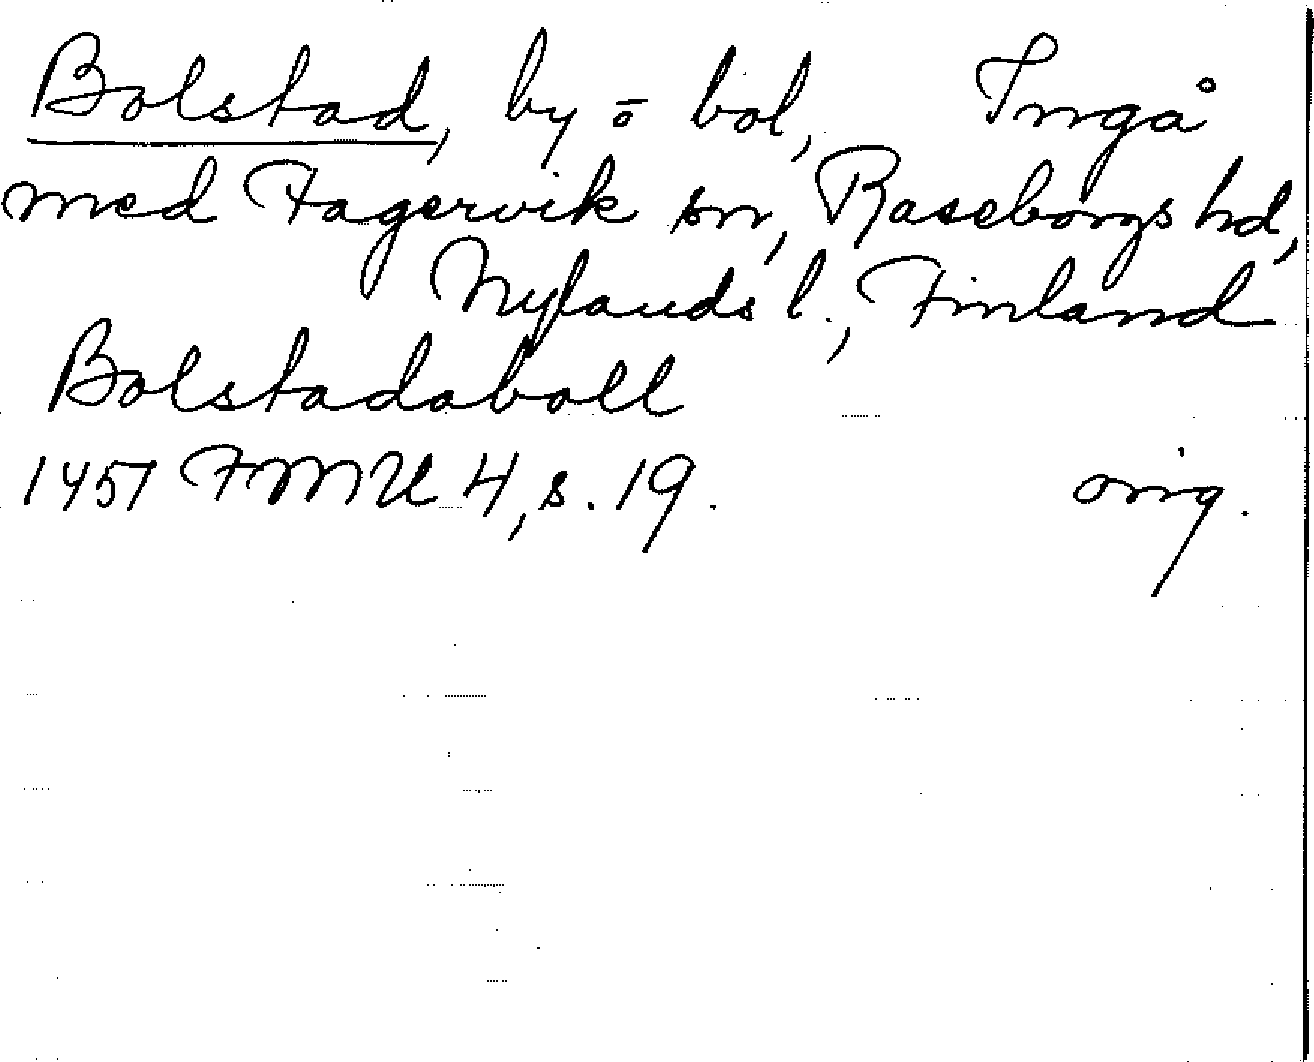 Bolstad, by o bol, Ingå
med Fagervik sn, Raseborgs hd,
Nylands l., Finland
Bolstadaboll
1457 FMU 4, s. 19. orig.